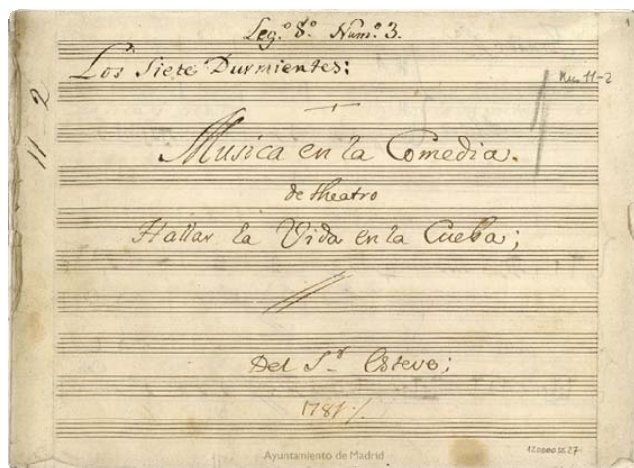 Leg.º 8.º Num.º 3.
Los Siete Durmientes:
Mus 11-2
11 2
Musica en la Comedia.
de theatro
Hallar la Vida en la Cueba;
Del S.r Esteve;
1781
Ayuntamiento de Madrid